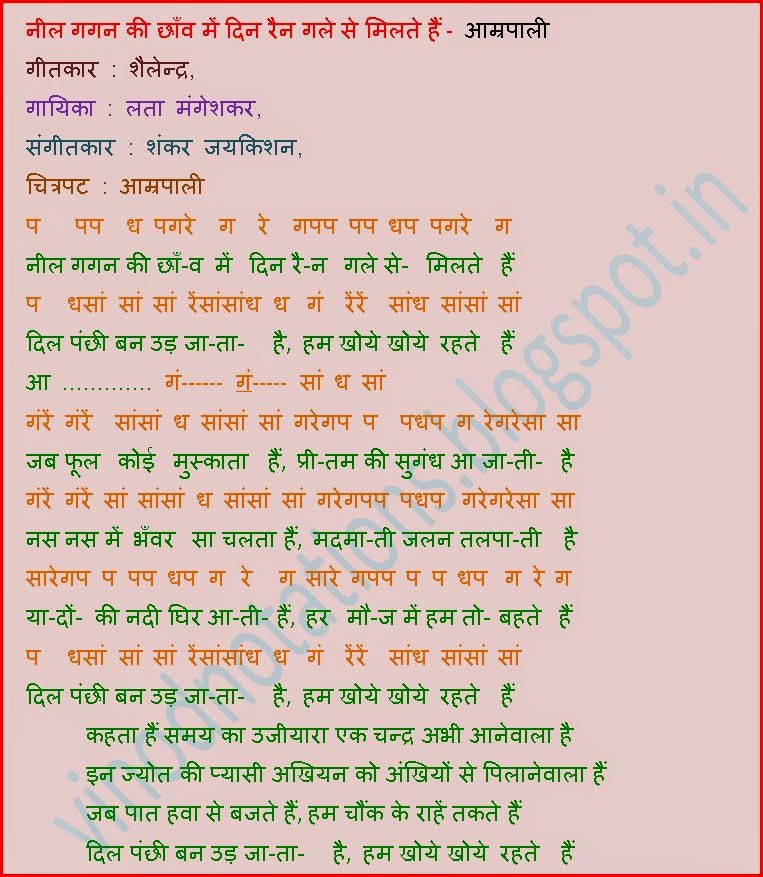 नील गगन की छाँव में दिन रैन गले से मिलते हैं - आम्रपाली
गीतकार : शैलेन्द्र,
गायिका : लता मंगेशकर,
संगीतकार : शंकर जयकिशन,
चित्रपट : आम्रपाली
प पप ध पगरे ग रे गपप पप धप पगरे ग
नील गगन की छाँ-व में दिन रै-न गले से- मिलते हैं
प धसां सां सां रेंसांसांध ध गं रेंरें सांध सांसां सां
दिल पंछी बन उड़ जा-ता- है, हम खोये खोये रहते हैं
आ ............. गं------ गं॒----- सां ध सां
गंरें गंरें सांसां ध सांसां सां गरेगप प पधप ग रेगरेसा सा
जब फूल कोई मुस्काता हैं, प्री-तम की सुगंध आ जा-ती- है
गंरें गंरें सां सांसां ध सांसां सां गरेगपप पधप गरेगरेसा सा
नस नस में भँवर सा चलता हैं, मदमा-ती जलन तलपा-ती है
सारेगप प पप धप ग रे ग सारे गपप प प धप ग रे ग
या-दों- की नदी घिर आ-ती- हैं, हर मौ-ज में हम तो- बहते हैं
प धसां सां सां रेंसांसांध ध गं रेंरें सांध सांसां सां
दिल पंछी बन उड़ जा-ता- है, हम खोये खोये रहते हैं
कहता हैं समय का उजीयारा एक चन्द्र अभी आनेवाला है
इन ज्योत की प्यासी अखियन को अंखियों से पिलानेवाला हैं
जब पात हवा से बजते हैं, हम चौंक के राहें तकते हैं
दिल पंछी बन उड़ जा-ता- है, हम खोये खोये रहते हैं
vinodnotations.blogspot.in